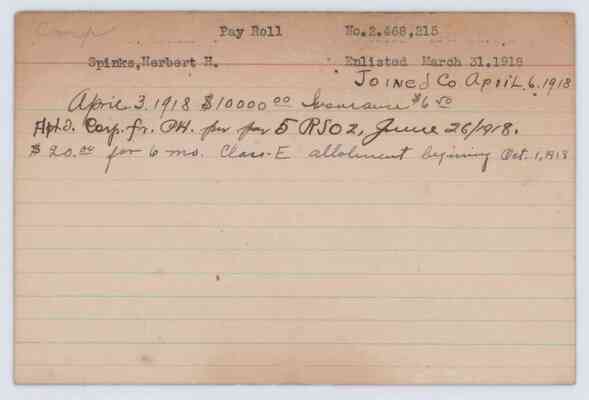 Corp
Pay Roll No.2.468,215
Spinks,Herbert H. Enlisted March 31,1918
Joined Co April 6.1918
April 3.1918 $10000 00 Insurance $6 50
Aptd. Corp. fr. Pvt. per par 5 RSO 2, June 26/1918.
$20.00 for 6 mo. Class-E allotment begining Oct. 1, 1918